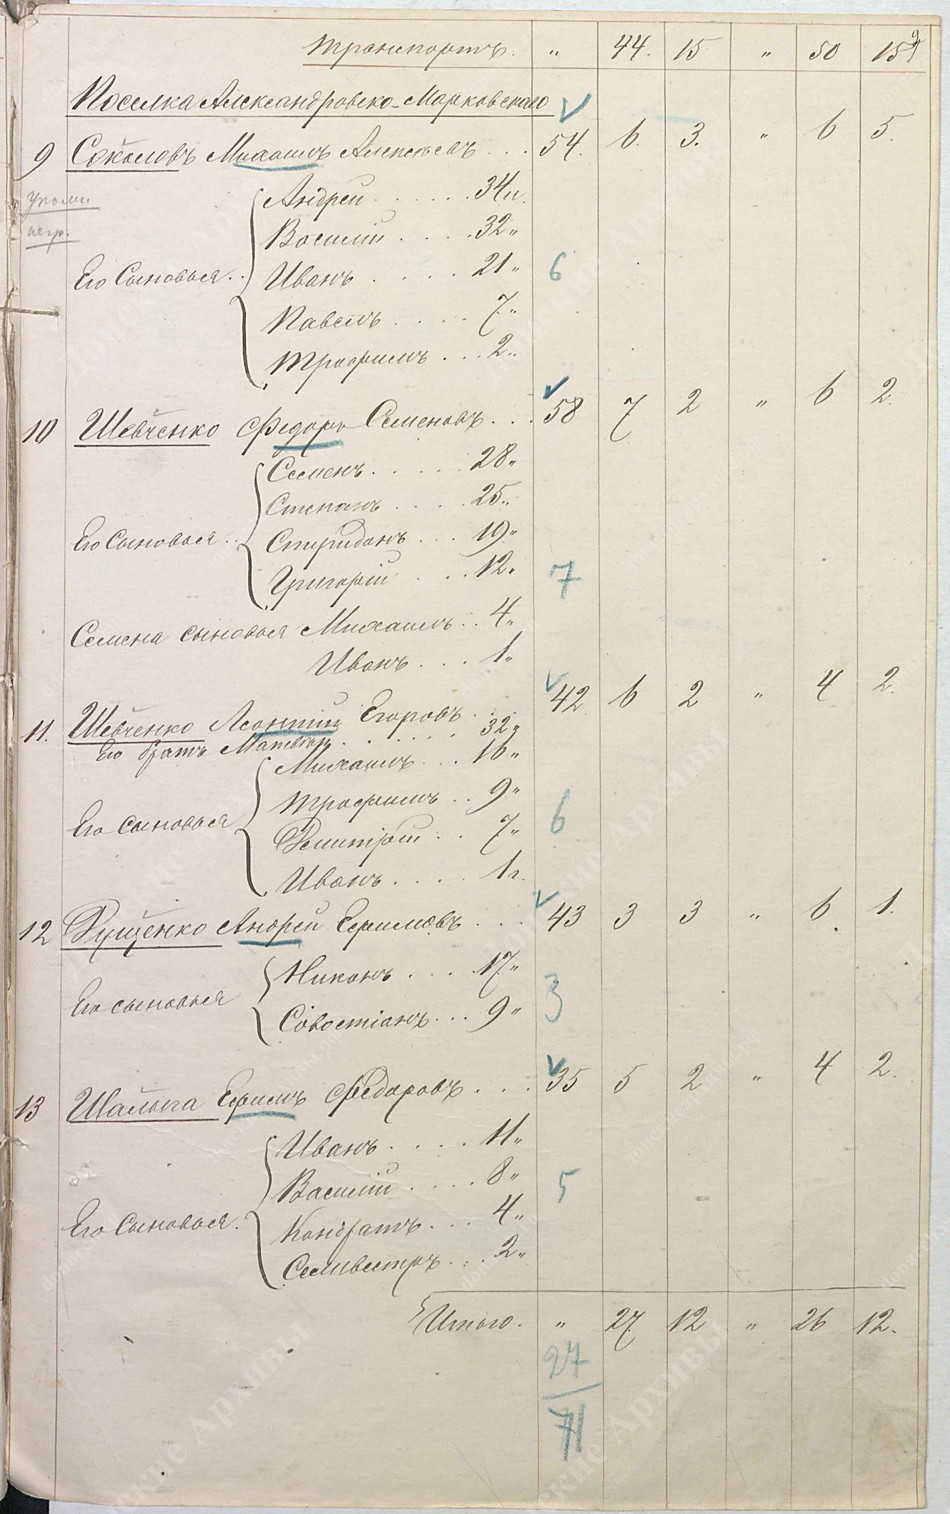 Транспортъ. „ 44. 15 „ 50 15
Поселка Александровско-Марковскаго
9 Соколовъ Михаилъ Алексѣевъ . . . 54. 6. 3. „ 6 5.
Андрей . . . . . 34 л.
Василій . . . . 32 „
Его Сыновья . . Иванъ . . . . 21 „ 6
Павелъ . . . . 7 „
Трофимъ . . . 2 „
10 Шевченко Федоръ Семеновъ . . . 58 7 2 „ 6 2.
Семенъ . . . . . 28 „
Степанъ . . . . 25 „
Его Сыновья . . Спиридонъ . . . 19 „
Григорій . . . 12 „ 7
Семена сыновья Михаилъ . . 4 „
Иванъ . . . 1 „
11. Шевченко Леонтій Егоровъ . . 42 6 2 „ 4 2.
Его братъ Матвѣй . . . . . . 32 „
Михаилъ . . . 16 „
Трофимъ . . 9 „
Его сыновья Дмитрій . . 7 „ 6
Иванъ . . . . 1 г.
12 Гущенко Андрей Ефимовъ . . . 43 3 3 „ 6 1.
Никонъ . . . 17 „
Его сыновья 3
Савостіанъ . . . 9 „
13 Шалыга Ефимъ Федоровъ . . . 35 5 2 „ 4 2.
Иванъ . . . . 11 „
Василій . . . . 8 „ 5
Его Сыновья. Кондратъ . . . 4 „
Селивестръ . . . 2 „
Итого. „ 27 12 „ 26 12.
27
71